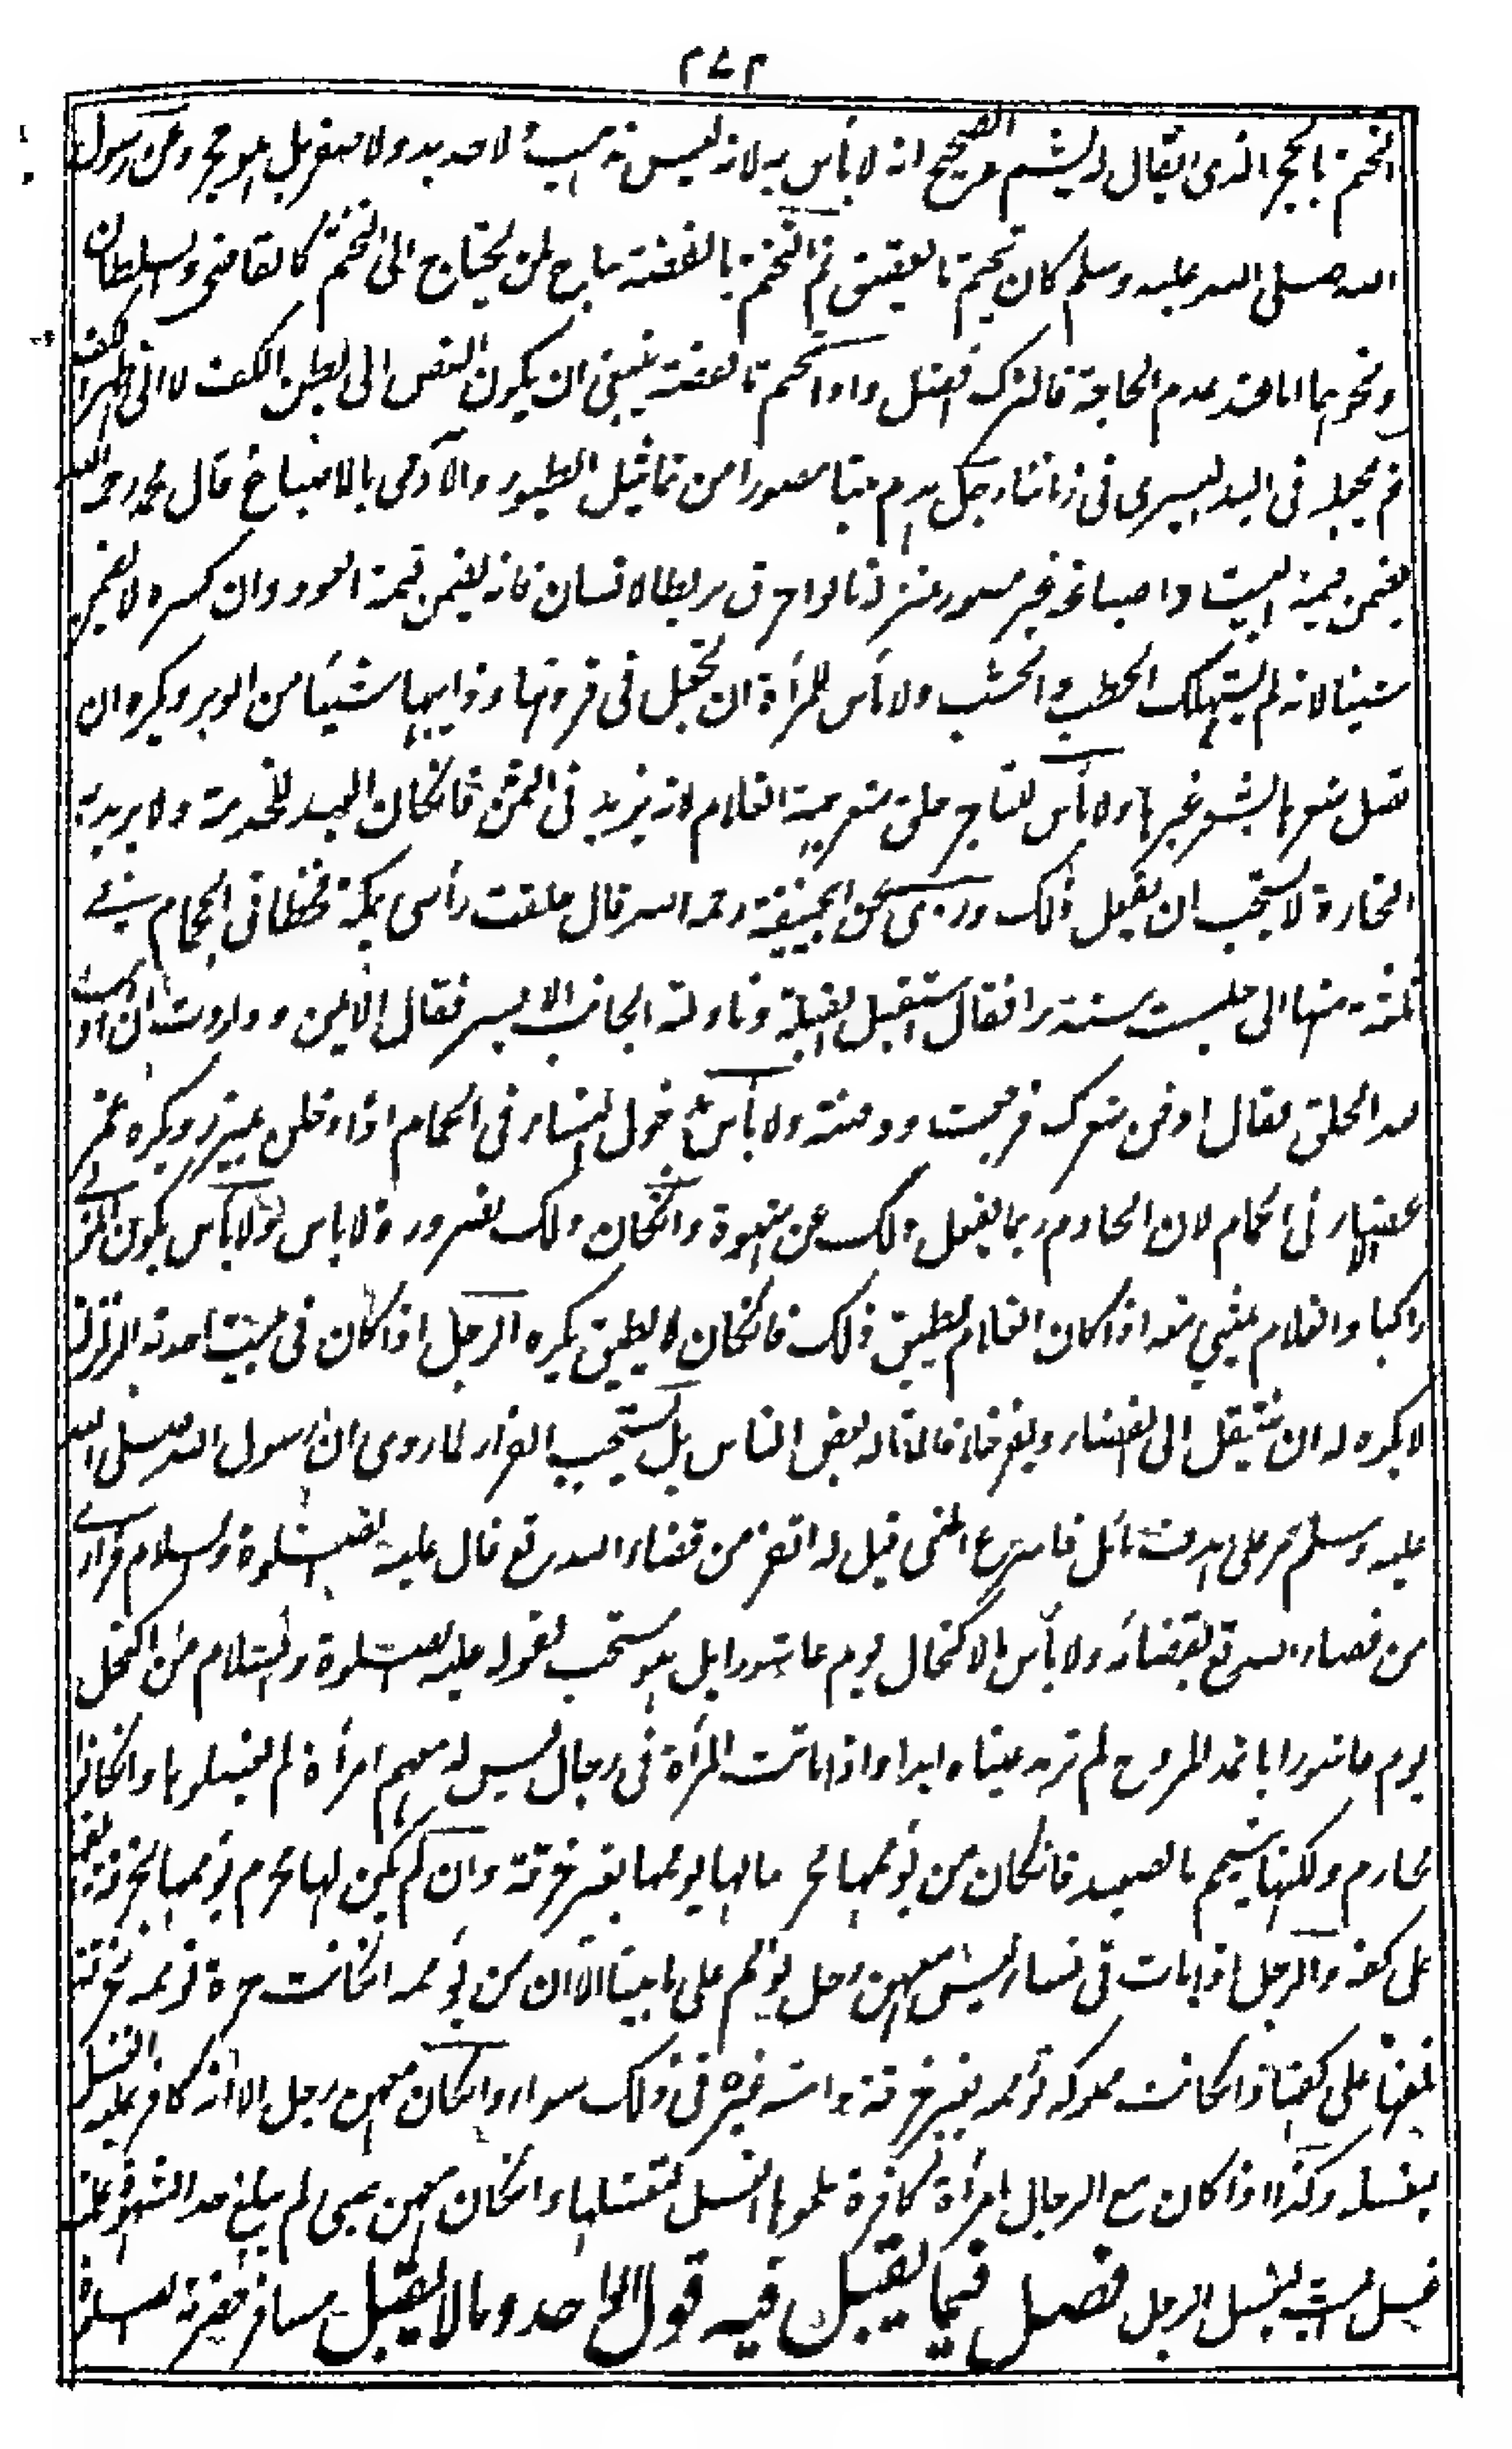 ٣٧٢
التختم بالحجر الذى يقال له يشم والصحيح انه لا بأس به لانه ليس بذهب ولا حديد ولا صفر بل هو حجر وعن رسول
الله صلى الله عليه وسلم كان تختم بالعقيق ثم التختم بالفضة مباح لمن يحتاج الى التختم كالقاضى والسلطان
ونحوهما اما عند عدم الحاجة فالترك افضل واذا تختم بالفضة ينبغى ان يكون الفص الى بطن الكف لا الى ظهر الكف
ثم يجعله فى اليد اليسرى فى زماننا رجل هدم بيتا مصورا من تماثيل الطيور والآدمى بالاصباغ قال محمد رحمه الله
يضمن قيمة البيت واصباغه غير مصور بمنزلة الواحرق بربطا لانسان فانه يضمن قيمة العود وان كسره لا يضمن
شيئا لانه لم يستهلك الحطب والخشب ولا بأس للمرأة ان تجعل فى قرونها وذوايبها شيئا من الوبر ويكره ان
تصل شعرها بشعر غيرها ولا بأس للتاجر حلق شعر جبهة الغلام لانه يزيد فى الثمن فانكان العبد للخدمة ولا يريد به
التجارة لا يستحب ان يفعل ذلك وروى عن ابى حنيفة رحمه الله قال حلقت رأسى بمكة فخطأنى الحجام فى
ثلثة منها انى جلست مستدبرا فقال استقبل القبلة وناولته الجانب الايسر فقال الايمن واردت ان اذهب
بعد الحلق فقال ادفن شعرك فرجعت ودفنته ولا بأس بدخول النساء فى الحمام اذا دخلن بميزر ويكره غمز
الاعضاء فى الحمام لان الخادم ربما يفعل ذلك عن شهوة وانكان ذلك لضرورة لا باس به ولا بأس بكون المولى
راكبا والغلام يمشى معه اذا كان الغلام يطيق ذلك فانكان لا يطيق يكره الرجل اذا كان فى بيت اخذته الزلزلة
لا يكره له ان ينتقل الى الفضاء ويفر خلافا لما قاله بعض الناس بل يستحب الفرار لما روى ان رسول الله صلى الله
عليه وسلم مر على هدف مائل فاسرع المشى قيل له اتفر من قضاء الله تع قال عليه الصلوة والسلام فرارى
من قضاء الله تع بقضائه ولا بأس بالاكتحال يوم عاشورا بل هو مستحب لقوله عليه الصلوة والسلام من اكتحل
يوم عاشورا باثمد المروح لم ترمد عيناه ابدا واذا ماتت المرأة فى رجال ليس له معهم امرأة لم يغسلوها وانكانوا
محارم ولكنها تيمم بالصعيد فانكان من يؤممها محرما لها يؤممها بغير خرقة وان لم يكن لها محرم يؤممها بخرقة يلفها
على كفه والرجل اذا مات فى نساء ليس معهن رجل يؤمم على ما بينا الا ان من يؤممه انكانت حرة تؤممه بخرقة
تلفها على كفها واذا كانت مملوكة تؤممه بغير خرقة وامته وغيره فى ذلك سواء وانكان معهن رجل الا انه كافر علمنه الغسل
ليغسله وكذا اذا كان مع الرجال امرأة كافرة علموها الغسل لتغسلها وانكان معهن صبى لم يبلغ حد الشهوة علمنه
غسل الميت ليغسل الرجل فصل فيما يقبل فيه قول الواحد وما لا يقبل مسافر حضرته الصلوة